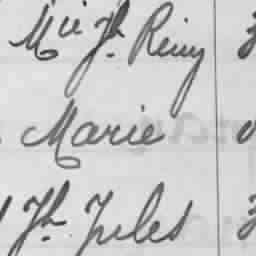 Mie Jh Remy
Marie
Jh Jules